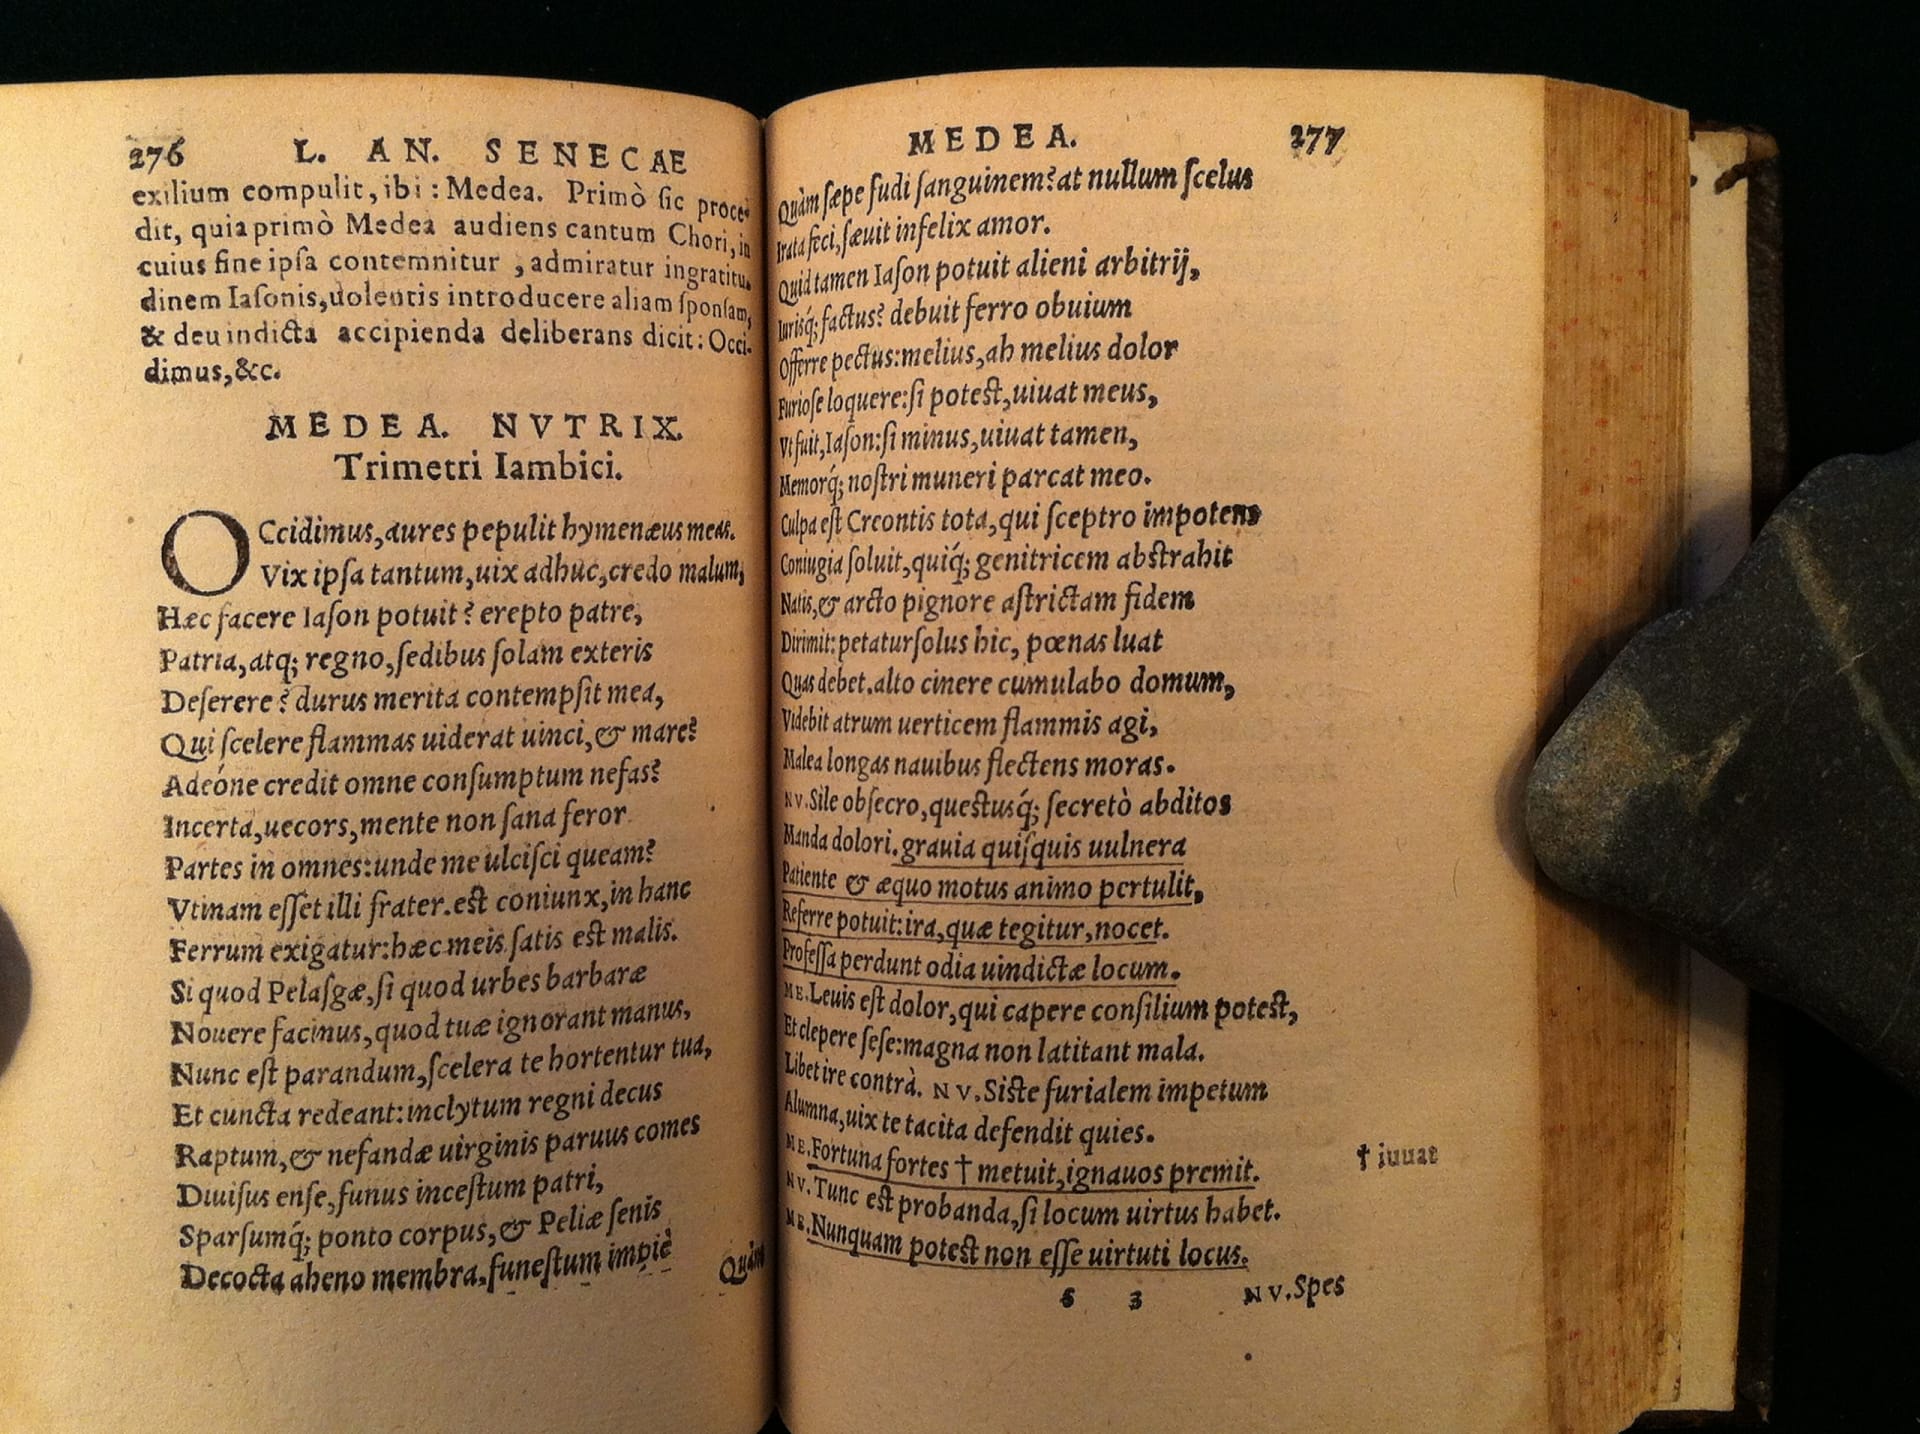 276 L. AN. SENECAE
exilium compulit, ibi : Medea. Primò ſic proce-
dit, quia primò Medea audiens cantum Chori, in
cuius fine ipſa contemnitur , admiratur ingratitu-
dinem Iaſonis, uolentis introducere aliam ſponſam,
& de uindicta accipienda deliberans dicit: Occi-
dimus, &c.
MEDEA. NVTRIX.
Trimetri Iambici.
OCcidimus, aures pepulit hymenæus meas.
Vix ipſa tantum, uix adhuc, credo malum,
Hæc facere Iaſon potuit? erepto patre,
Patria, atq; regno, ſedibus ſolam exteris
Deſerere? durus merita contempſit mea,
Qui ſcelere flammas uiderat uinci, & mare?
Adeóne credit omne conſumptum nefas?
Incerta, uecors, mente non ſana feror
Partes in omnes: unde me ulciſci queam?
Vtinam eſſet illi frater. est coniunx, in hanc
Ferrum exigatur: hæc meis ſatis est malis.
Si quod Pelaſgæ, ſi quod urbes barbaræ
Nouere facinus, quod tuæ ignorant manus,
Nunc eſt parandum, ſcelera te hortentur tua,
Et cuncta redeant: inclytum regni decus
Raptum, & nefandæ uirginis paruus comes
Diuiſus enſe, funus inceſtum patri,
Sparſumq́; ponto corpus, & Peliæ ſenis
Decocta aheno membra, funeſtum impiè
Quàm
MEDEA. 277
Quàm ſæpe fudi ſanguinem? at nullum ſcelus
Irata feci, ſæuit infelix amor.
Quid tamen Iaſon potuit alieni arbitrij,
Iurisq́; factus? debuit ferro obuium
Offerre pectus: melius, ah melius dolor
Furioſe loquere: ſi poteſt, uiuat meus,
Vt fuit, Iaſon: ſi minus, uiuat tamen,
Memorq́; noſtri muneri parcat meo.
Culpa eſt Creontis tota, qui ſceptro impotens
Coniugia ſoluit, quiq́; genitricem abſtrahit
Natis, & arcto pignore aſtrictam fidem
Dirimit: petatur ſolus hic, pœnas luat
Quas debet. alto cinere cumulabo domum,
Videbit atrum uerticem flammis agi,
Malea longas nauibus flectens moras.
NV. Sile obſecro, queſtusq́; ſecretò abditos
Manda dolori. grauia quiſquis uulnera
Patiente & æquo motus animo pertulit,
Referre potuit: ira, quæ tegitur, nocet.
Profeſſa perdunt odia uindictæ locum.
ME. Leuis eſt dolor, qui capere conſilium poteſt,
Et clepere ſeſe: magna non latitant mala.
Libet ire contrà. NV. Siſte furialem impetum
Alumna, uix te tacita defendit quies.
ME. Fortuna fortes † metuit, ignauos premit.
† iuuat
NV. Tunc eſt probanda, ſi locum uirtus habet.
ME. Nunquam poteſt non eſſe uirtuti locus.
s 3 NV. Spes